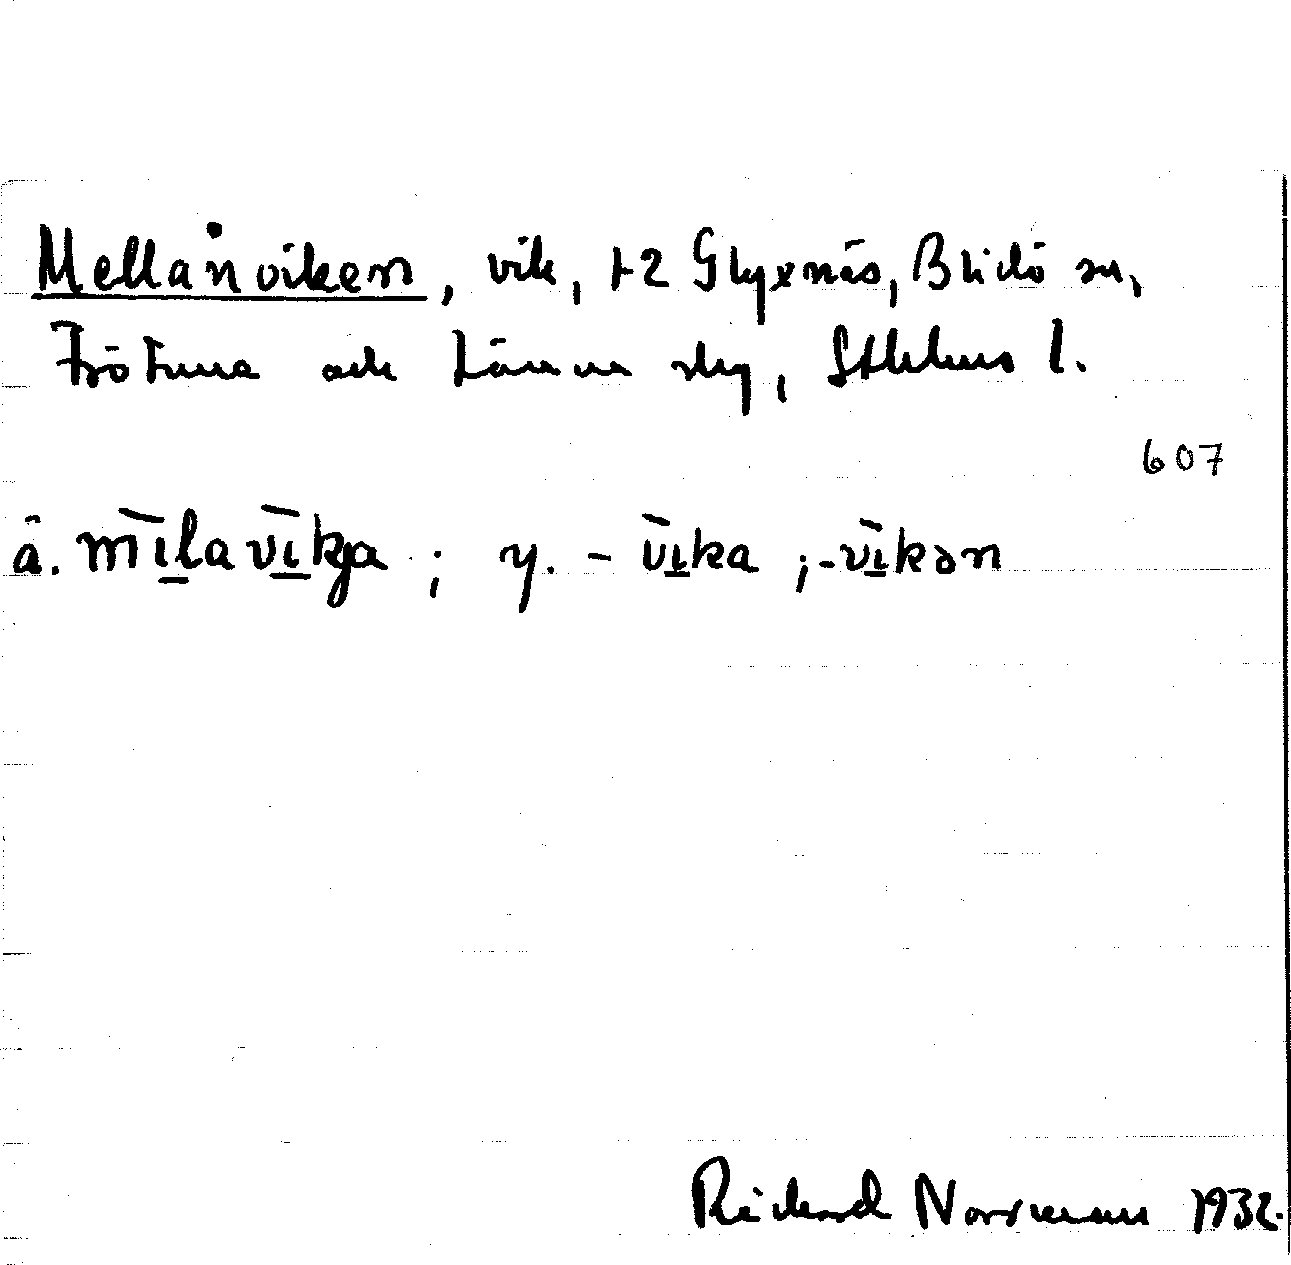 Mellanviken, vik, t 2 Glyxnäs, Blidö sn,
Frötuna och Länna skg, Sthlms l.
607
ä. mīlavīkja ; y. - vīka ; -vīkən
Rickard Norrman 1932.